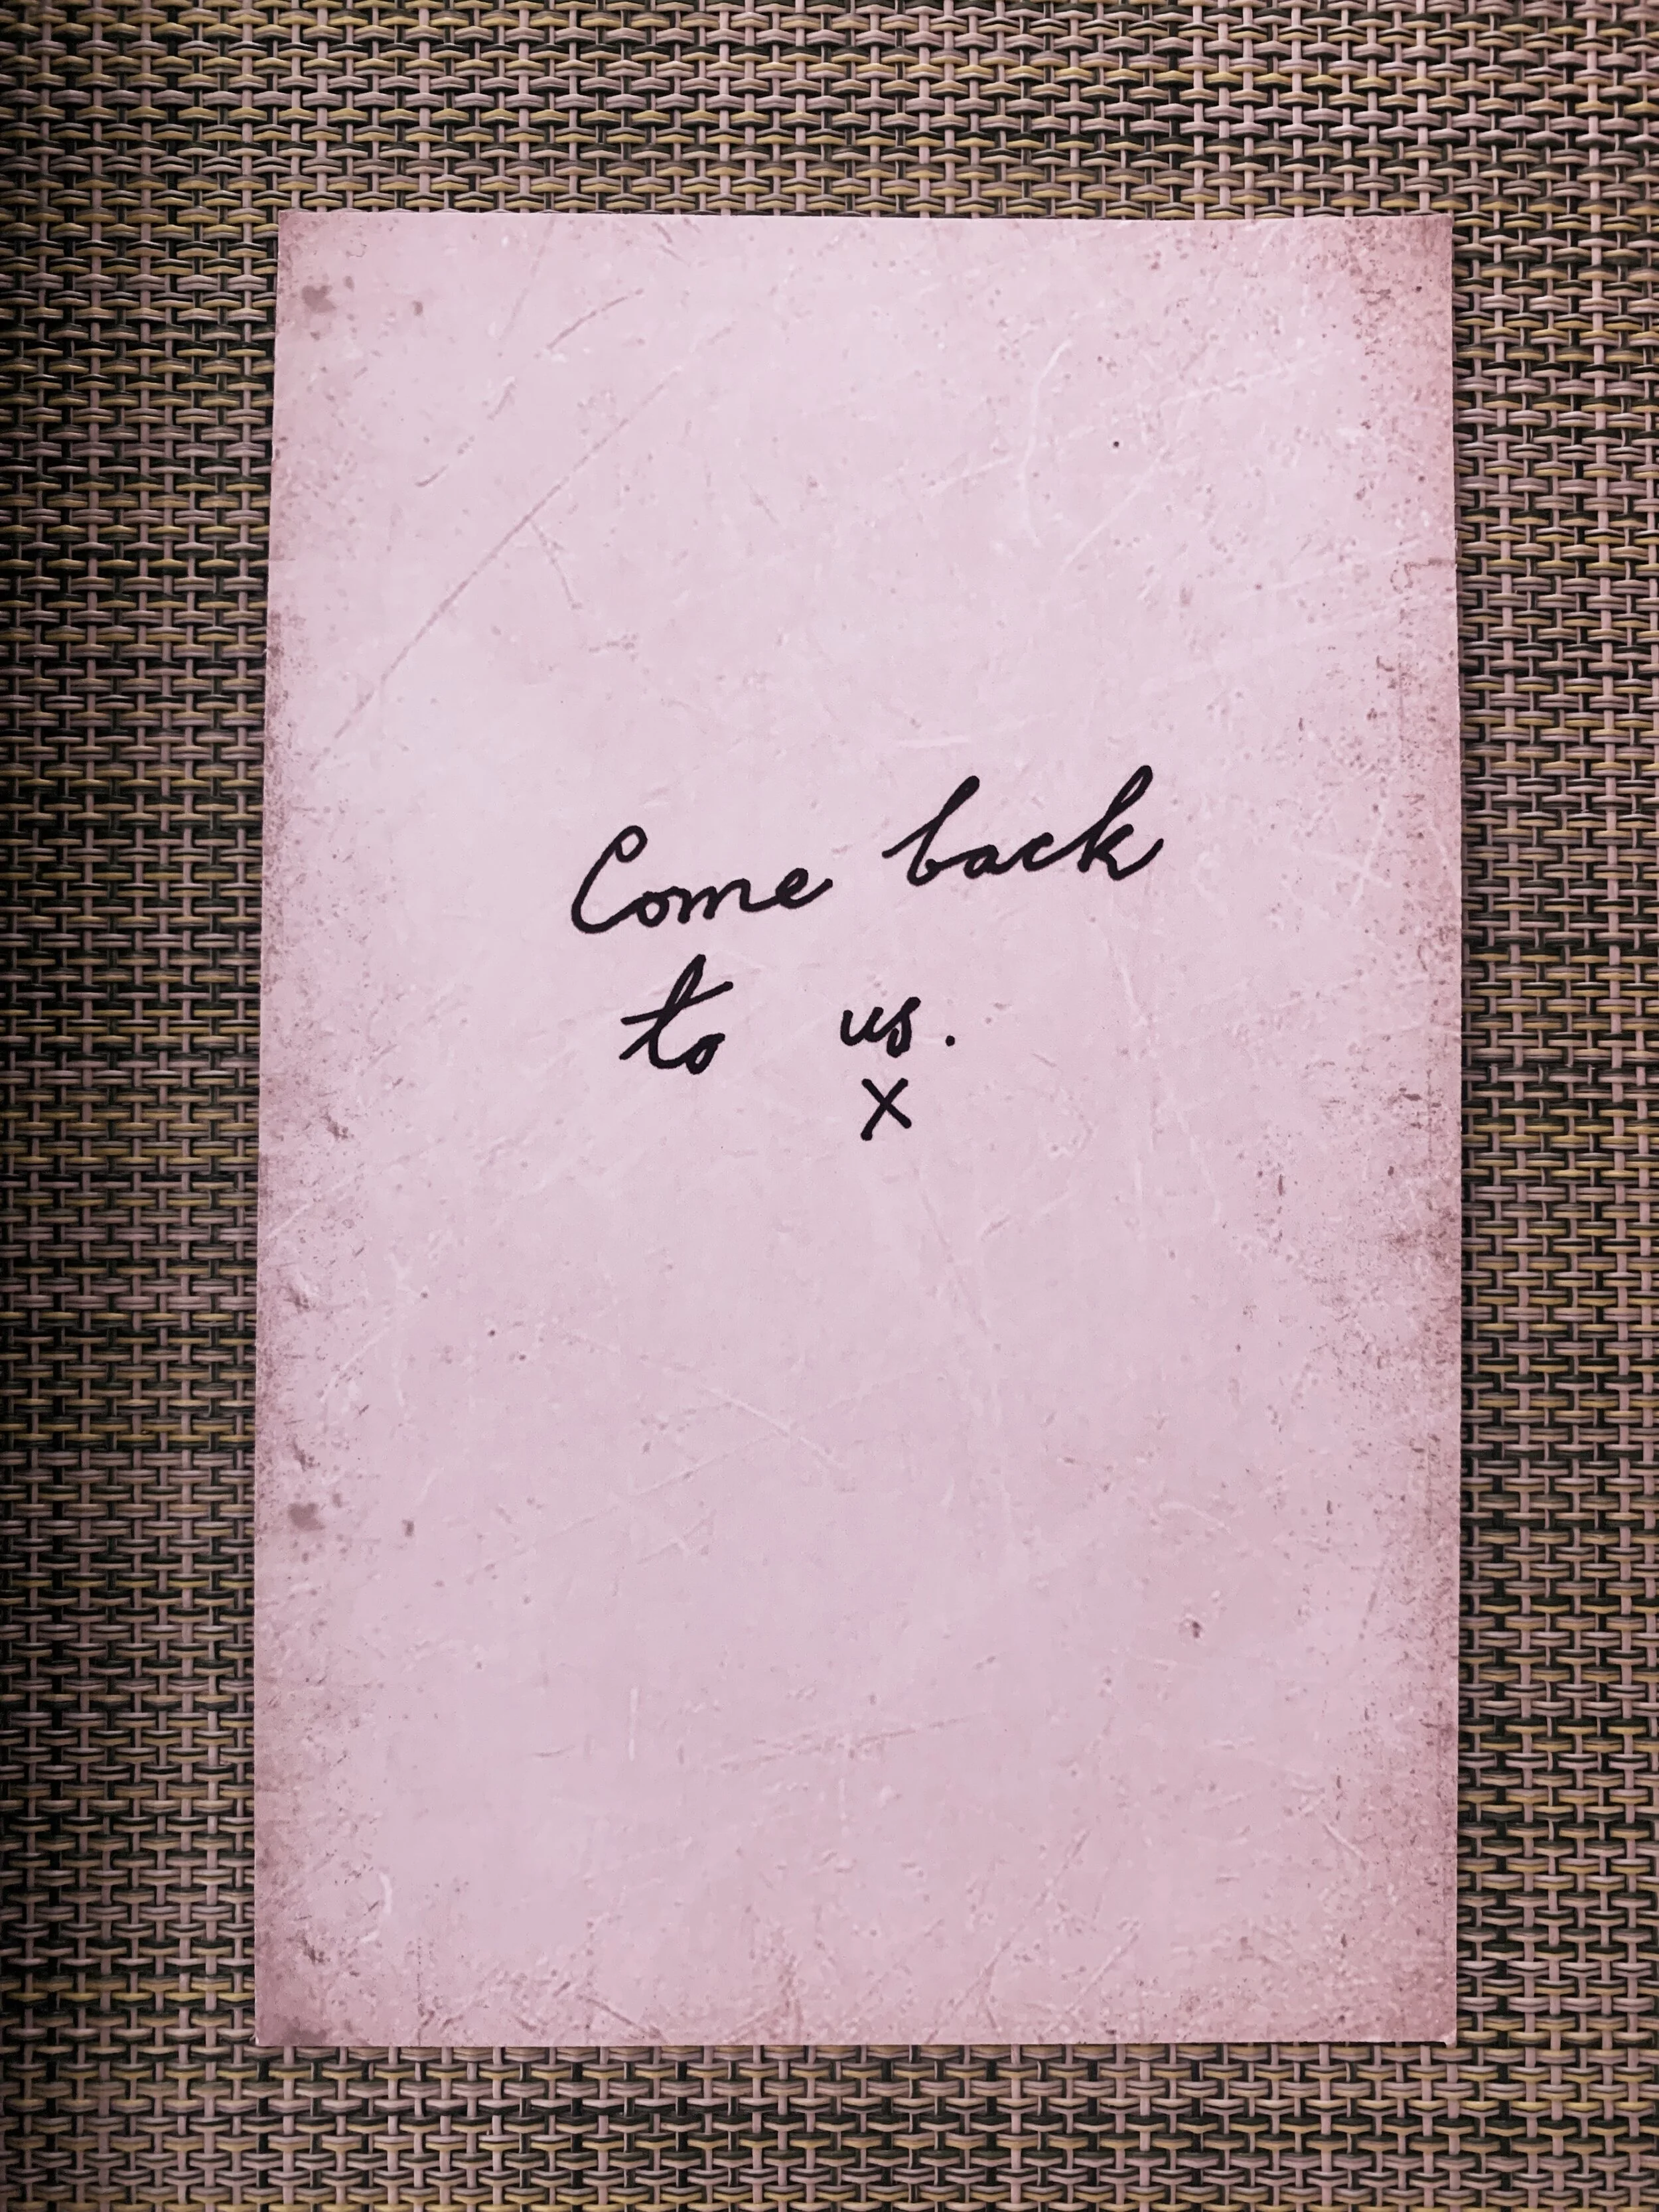 Come back
to us.
X